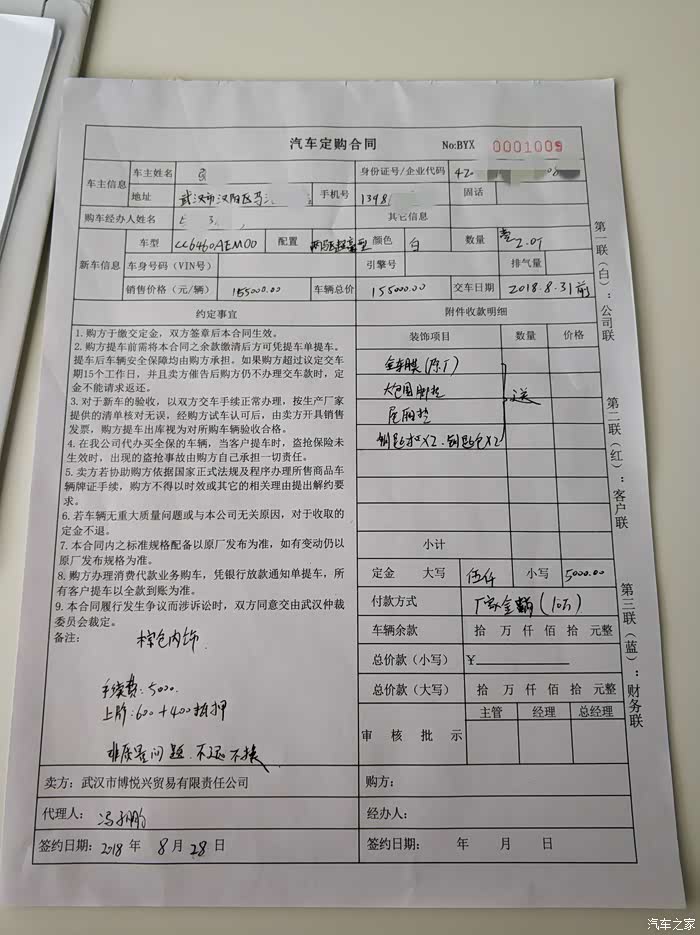 汽车定购合同 No:BYX 0001009
车主信息 车主姓名 身份证号/企业代码 420
地址 武汉市汉阳区 手机号 1348 固话
购车经办人姓名 其它信息
新车信息 车型 CC6460AEM00 配置 两驱超豪型 颜色 白 数量 壹 2.0T
车身号码（VIN号） 引擎号 排气量
销售价格（元/辆） 155000.00 车辆总价 155000.00 交车日期 2018.8.31前
约定事宜 附件收款明细
1. 购方于缴交定金，双方签章后本合同生效。
2. 购方提车前需将本合同之余款缴清后方可凭提车单提车。
提车后车辆安全保障均由购方承担。如果购方超过议定交车
期15个工作日，并且卖方催告后购方仍不办理交车款时，定
金不能请求返还。
3. 对于新车的验收，以双方交车手续正常办理，按生产厂家
提供的清单核对无误，经购方试车认可后，由卖方开具销售
发票，购方提车出库视为对所购车辆验收合格。
4. 在我公司代办买全保的车辆，当客户提车时，盗抢保险未
生效时，出现的盗抢事故由购方自己承担一切责任。
5. 卖方若协助购方依据国家正式法规及程序办理所售商品车
辆牌证手续，购方不得以时效或其它的相关理由提出解约要
求。
6. 若车辆无重大质量问题或与本公司无关原因，对于收取的
定金不退。
7. 本合同内之标准规格配备以原厂发布为准，如有变动仍以
原厂发布规格为准。
8. 购方办理消费代款业务购车，凭银行放款通知单提车，所
有客户提车以全款到账为准。
9. 本合同履行发生争议而涉诉讼时，双方同意交由武汉仲裁
委员会裁定。
备注： 棕色内饰
手续费：5000.
上牌：600+400抵押
非质量问题.不退不换
装饰项目 数量 价格
全车膜（原厂）
大包围脚垫
尾厢垫
钥匙扣X2.钥匙包X2
送
小计
定金 大写 伍仟 小写 5000.00
付款方式 厂家金融（10万）
车辆余款 拾 万 仟 佰 拾 元整
总价款（小写） ¥
总价款（大写） 拾 万 仟 佰 拾 元整
审核批示 主管 经理 总经理
卖方：武汉市博悦兴贸易有限责任公司 购方：
代理人： 经办人：
签约日期：2018 年 8 月 28 日 签约日期： 年 月 日
第一联（白）：公司联
第二联（红）：客户联
第三联（蓝）：财务联
汽车之家